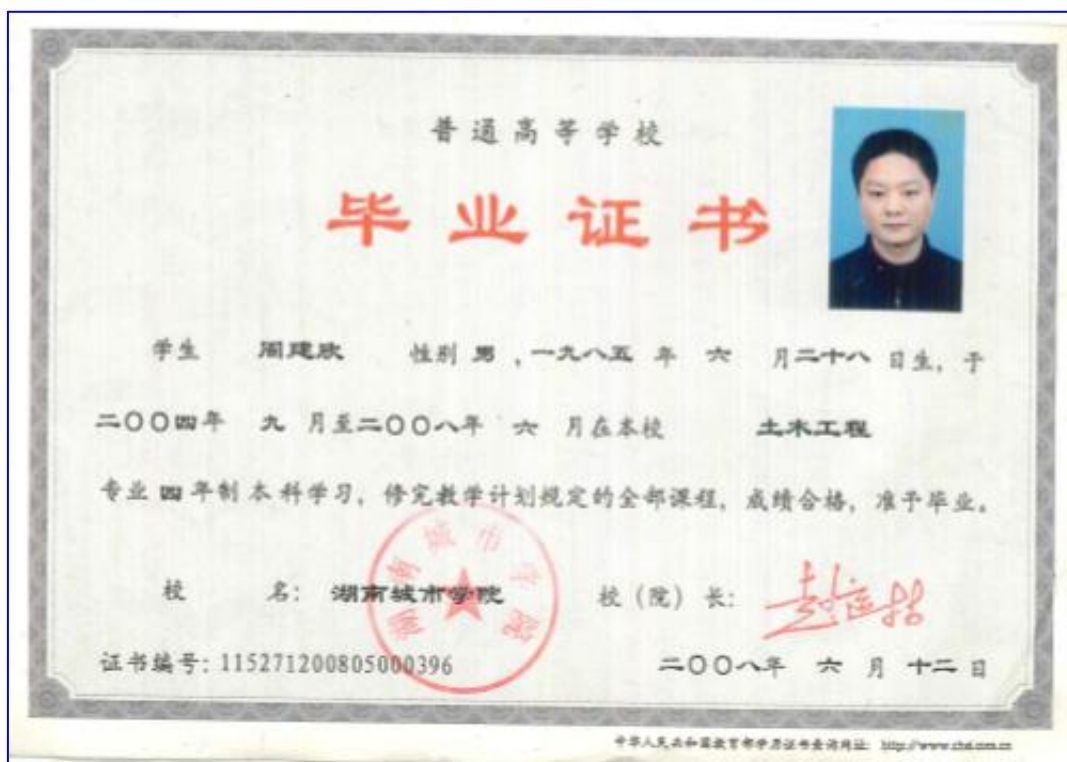 普通高等学校
毕业证书
学生 周建欣 性别 男 ,一九八五 年 六 月二十八 日生, 于
二〇〇四年 九 月至二〇〇八年 六 月在本校 土木工程
专业 四 年制 本科学习, 修完教学计划规定的全部课程, 成绩合格, 准予毕业。
校 名: 湖南城市学院 校 (院) 长:
湖南城市学院
证书编号: 115271200805000396 二〇〇八年 六 月 十二 日
中华人民共和国教育部学历证书查询网址: http://www.chsi.com.cn